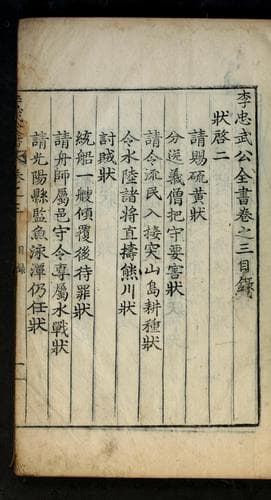 李忠武公全書卷之三目錄
狀啓二
請賜硫黃狀
分送義僧把守要害狀
請令流民入接突山島耕種狀
令水陸諸將直擣熊川狀
討賊狀
統船一艘傾覆後待罪狀
請舟師屬邑守令專屬水戰狀
請光陽縣監魚泳潭仍任狀
卷之三
目錄